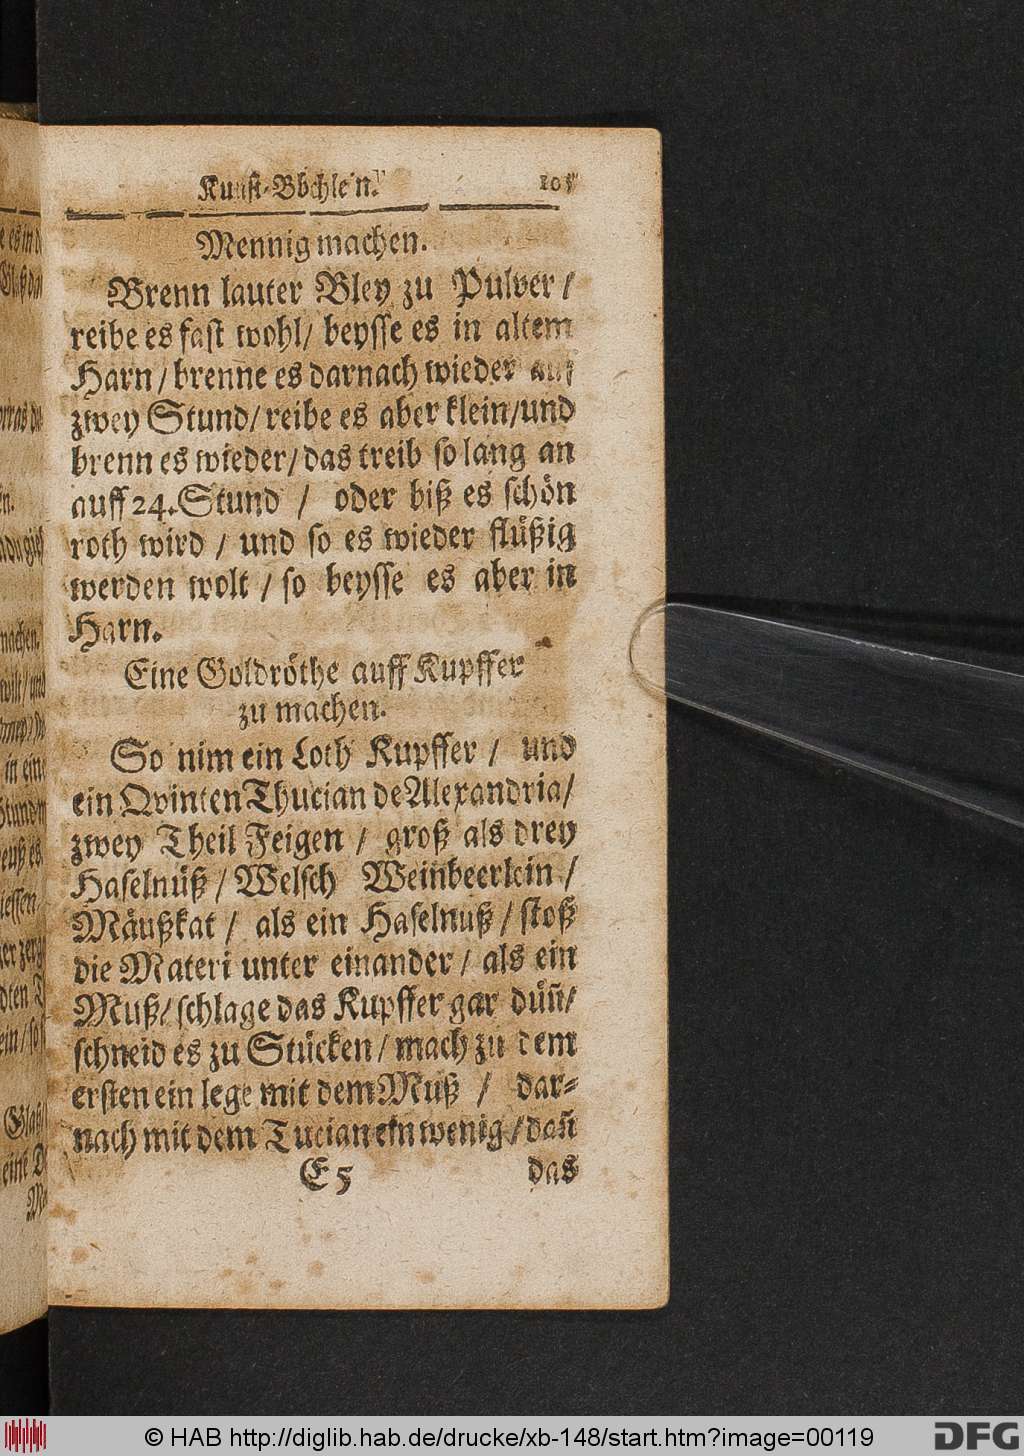 Kunst-Büchlein. 105
Mennig machen.
Brenn lauter Bley zu Pulver /
reibe es fast wohl / beysse es in altem
Harn / brenne es darnach wieder auff
zwey Stund / reibe es aber klein / und
brenn es wieder / das treib so lang an
auff 24. Stund / oder biß es schön
roth wird / und so es wieder flüßig
werden wolt / so beysse es aber in
Harn.
Eine Goldröthe auff Kupffer
zu machen.
So nim ein Loth Kupffer / und
ein Qvinten Thucian de Alexandria /
zwey Theil Feigen / groß als drey
Haselnüß / Welsch Weinbeerlein /
Mäußkat / als ein Haselnuß / stoß
die Materi unter einander / als ein
Muß / schlage das Kupffer gar düñ /
schneid es zu Stücken / mach zu dem
ersten ein lege mit dem Muß / dar-
nach mit dem Tucian ein wenig / dañ
E 5 das
© HAB http://diglib.hab.de/drucke/xb-148/start.htm?image=00119
DFG